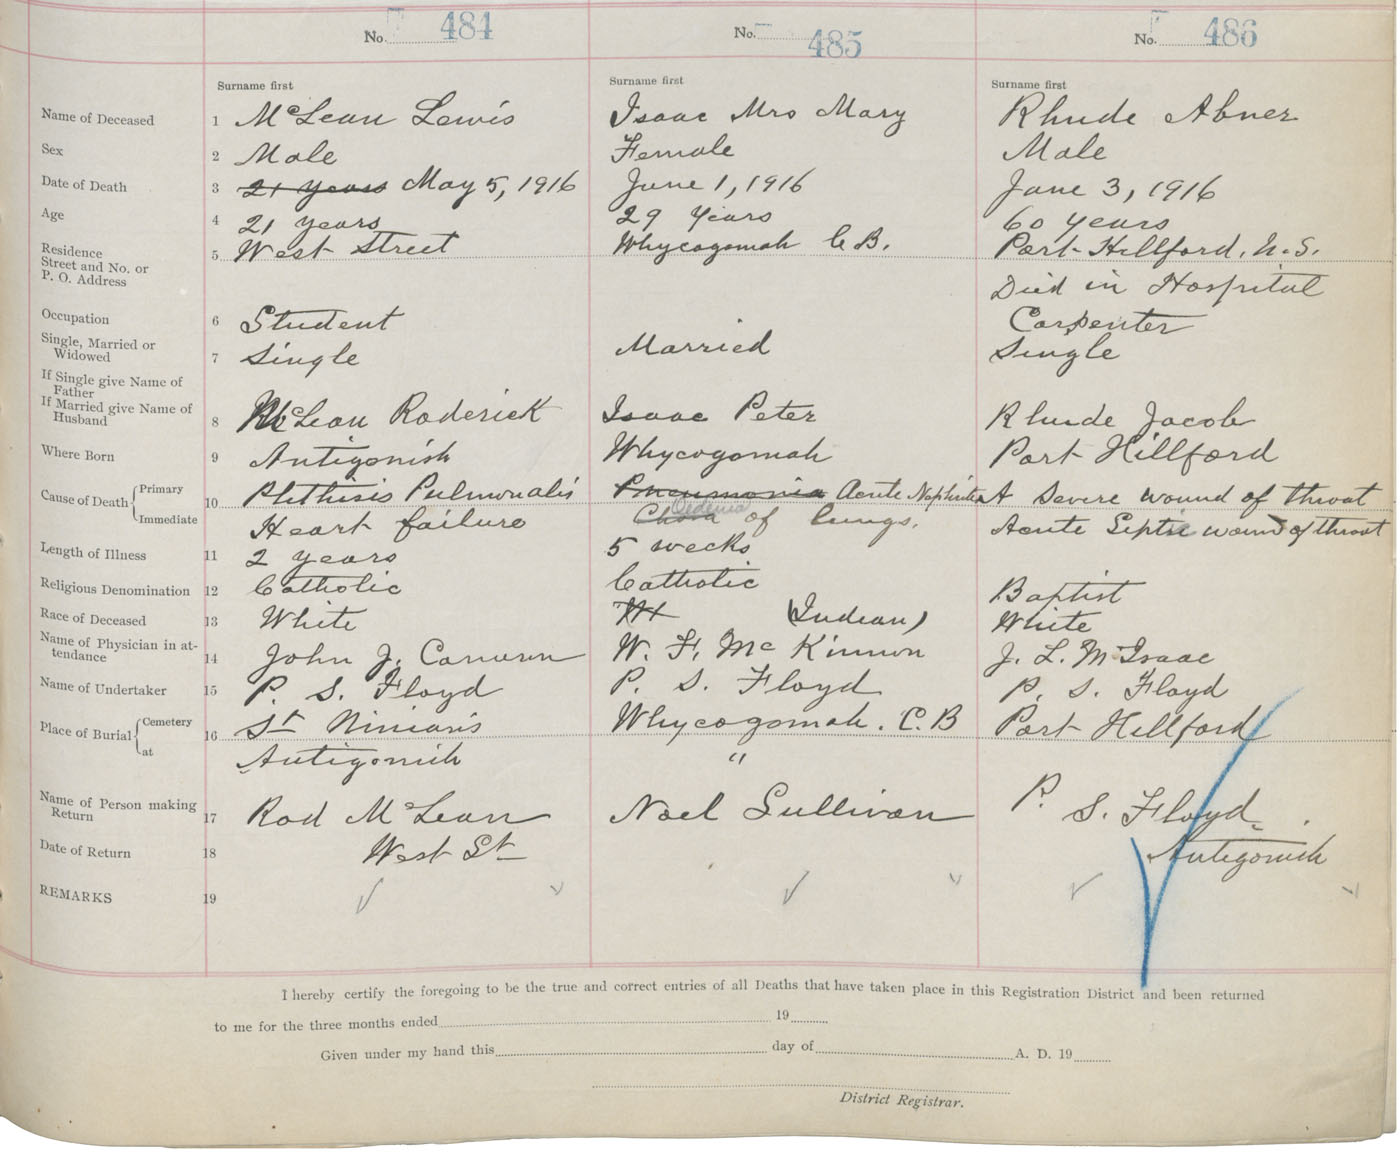 No. 484 No. 485 No. 486
Surname first Surname first Surname first
Name of Deceased 1 McLean Lewis Isaac Mrs Mary Rhude Abner
Sex 2 Male Female Male
Date of Death 3 21 years May 5, 1916 June 1, 1916 June 3, 1916
Age 4 21 years 29 Years 60 years
Residence
Street and No. or 5 West Street Whycogomah C B. Port Hillford. N.S.
P. O. Address
Died in Hospital
Occupation 6 Student Carpenter
Single, Married or
Widowed 7 Single Married Single
If Single give Name of
Father
If Married give Name of
Husband 8 McLean Roderick Isaac Peter Rhude Jacob
Where Born 9 Antigonish Whycogomah Port Hillford
Cause of Death Primary 10 Phthisis Pulmonalis Pneumonia Acute Nephritis A severe wound of throat
Immediate Heart failure Oedema of lungs. Acute Septic wound of throat
Length of Illness 11 2 years 5 weeks
Religious Denomination 12 Catholic Catholic Baptist
Race of Deceased 13 White (Indian) White
Name of Physician in at-
tendance 14 John J. Cameron W. F. McKinnon J. L. McIsaac
Name of Undertaker 15 P. S. Floyd P. S. Floyd P. S. Floyd
Place of Burial Cemetery 16 St Ninian's Whycogomah. C.B Port Hillford
at Antigonish "
Name of Person making
Return 17 Rod McLean Noel Sullivan P. S. Floyd
Date of Return 18 West St Antigonish
REMARKS 19
I hereby certify the foregoing to be the true and correct entries of all Deaths that have taken place in this Registration District and been returned
to me for the three months ended 19
Given under my hand this day of A. D. 19
District Registrar.